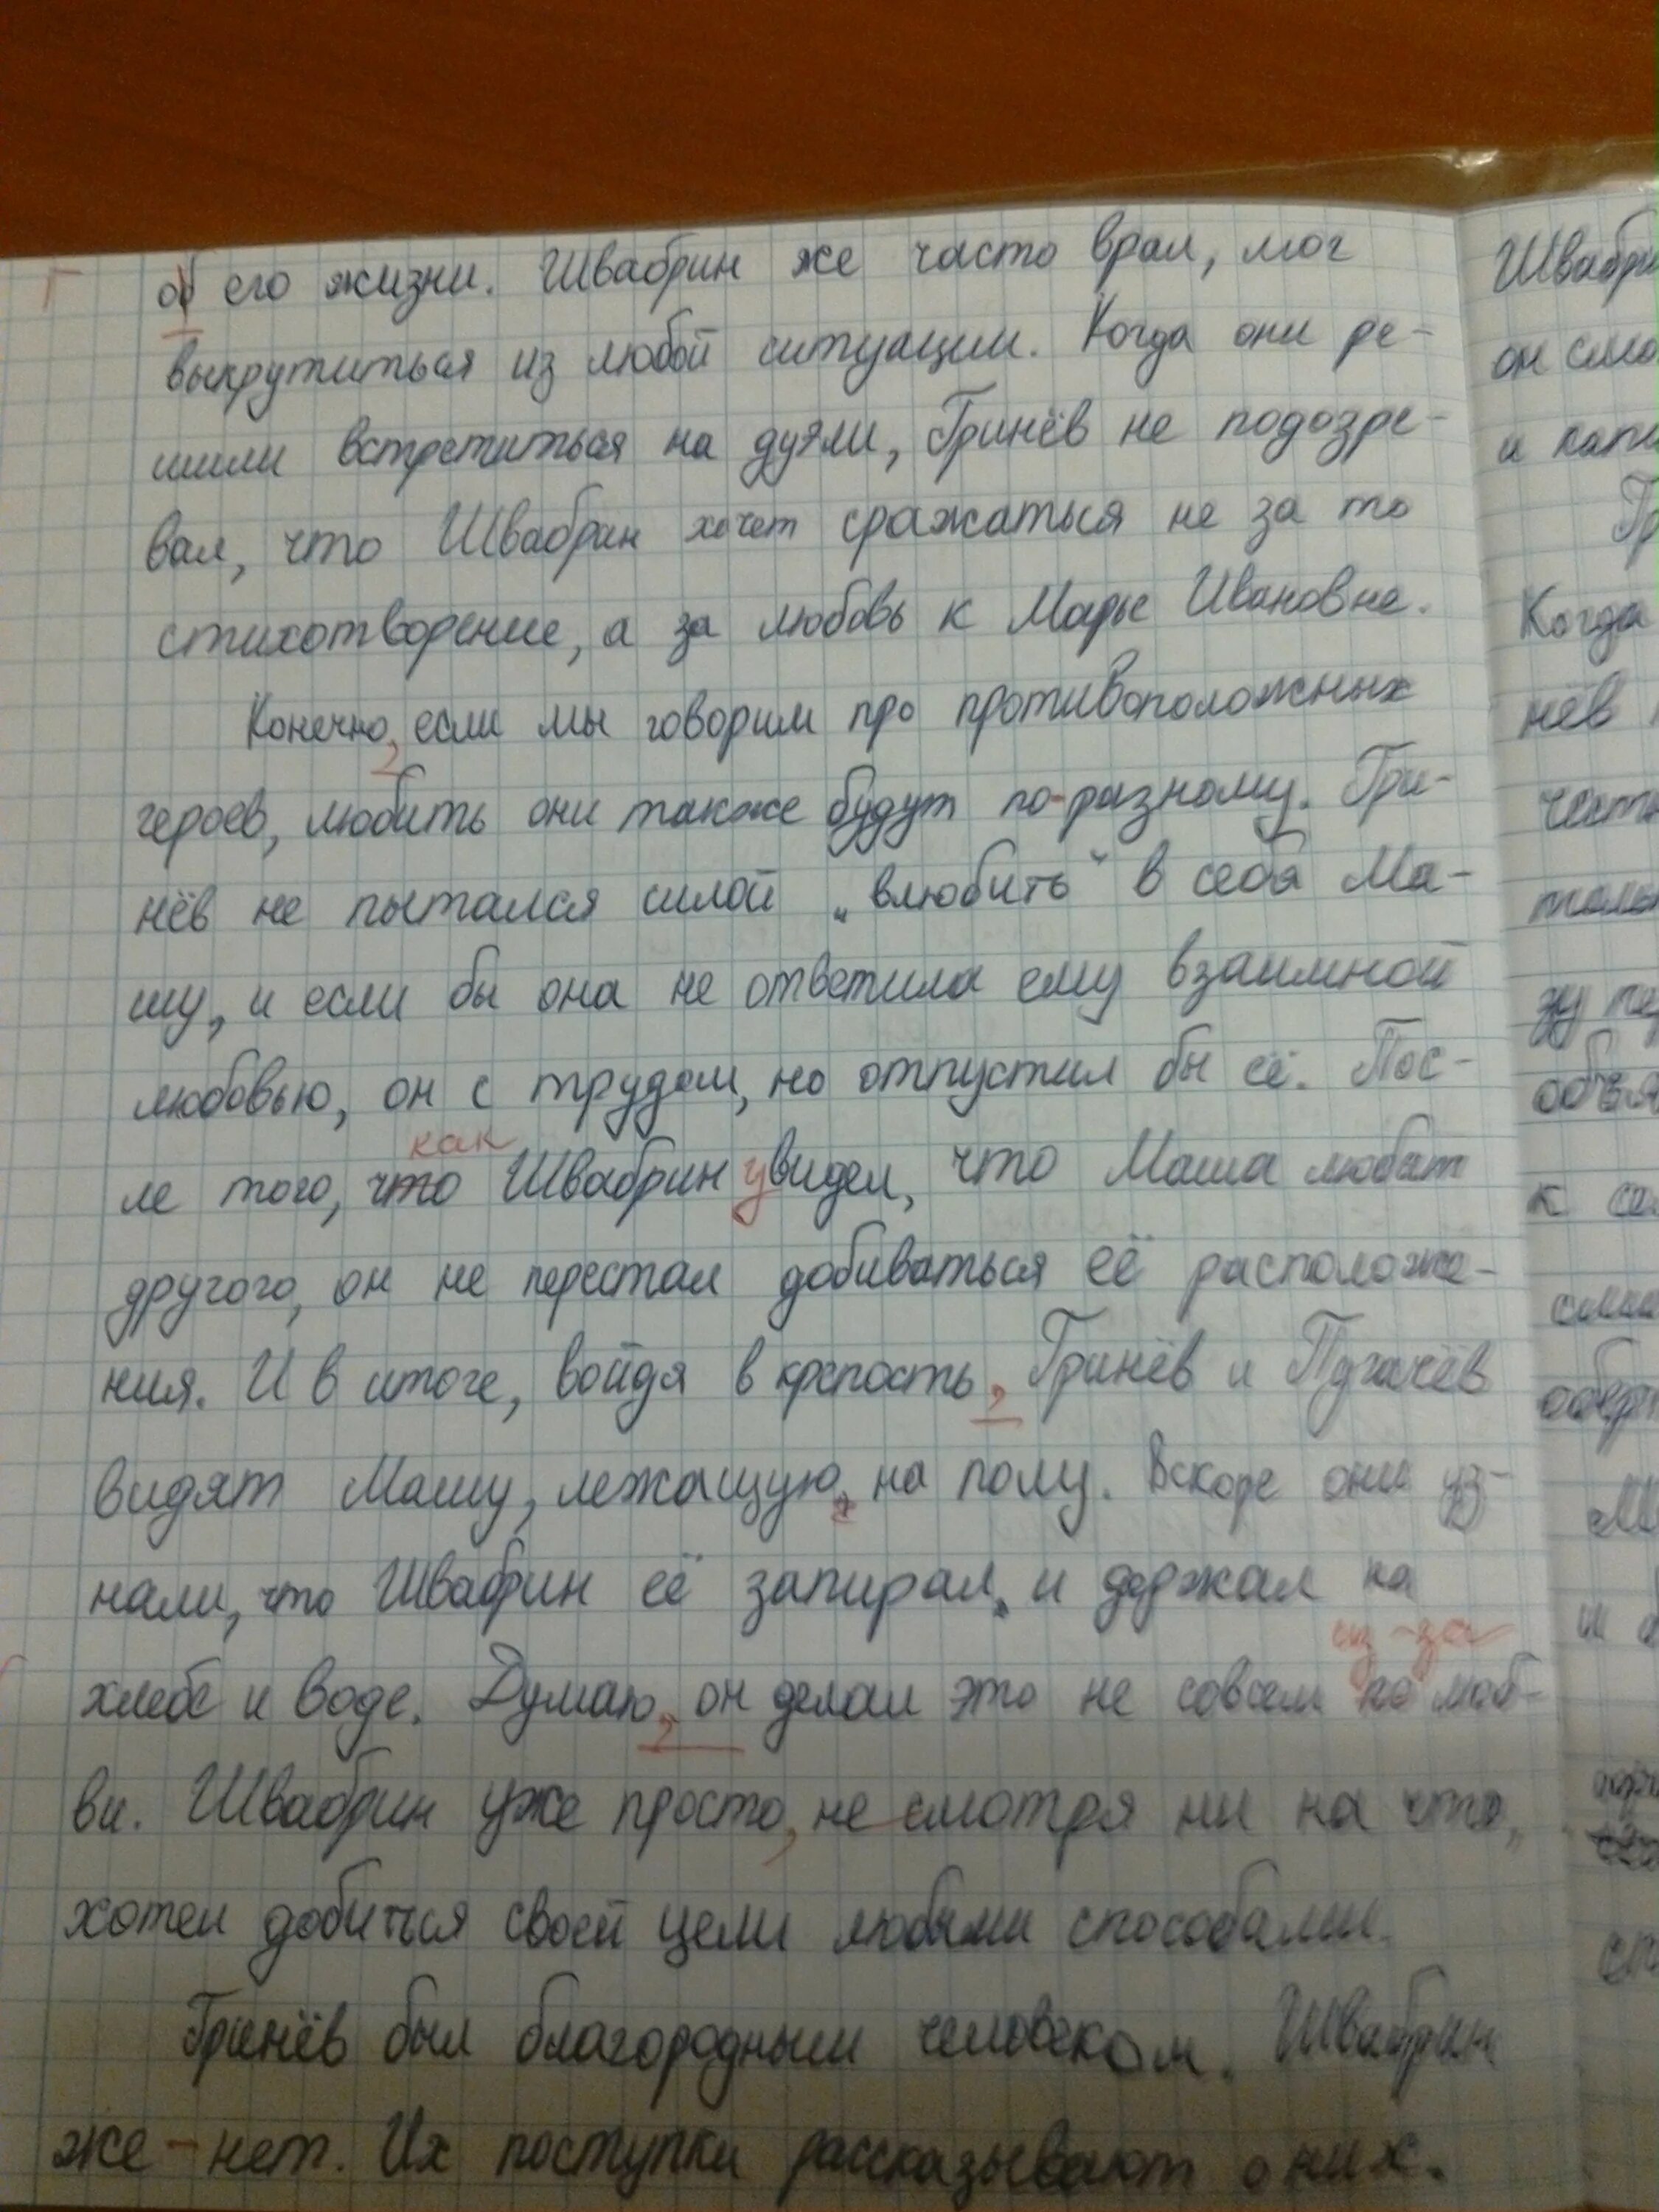 об его жизни. Швабрин же часто врал, мог
выкрутиться из любой ситуации. Когда они ре-
шили встретиться на дуэли, Гринёв не подозре-
вал, что Швабрин хочет сражаться не за то
стихотворение, а за любовь к Марье Ивановне.
Конечно, если мы говорим про противоположных
героев, любить они также будут по-разному. Гри-
нёв не пытался силой „влюбить" в себя Ма-
шу, и если бы она не ответила ему взаимной
любовью, он с трудом, но отпустил бы её. Пос-
как
ле того, что Швабрин увидел, что Маша любит
другого, он не перестал добиваться её расположе-
ния. И в итоге, войдя в крепость, Гринёв и Пугачёв
видят Машу, лежащую на полу. Вскоре они уз-
нали, что Швабрин её запирал и держал на
из-за
хлебе и воде. Думаю, он делал это не совсем по люб-
ви. Швабрин уже просто, не смотря ни на что,
хотел добиться своей цели любыми способами.
Гринёв был благородным человеком. Швабрин
же - нет. Их поступки рассказывают о них.
Швабри
он смо
и
Гр
Когда
нёв
к
и